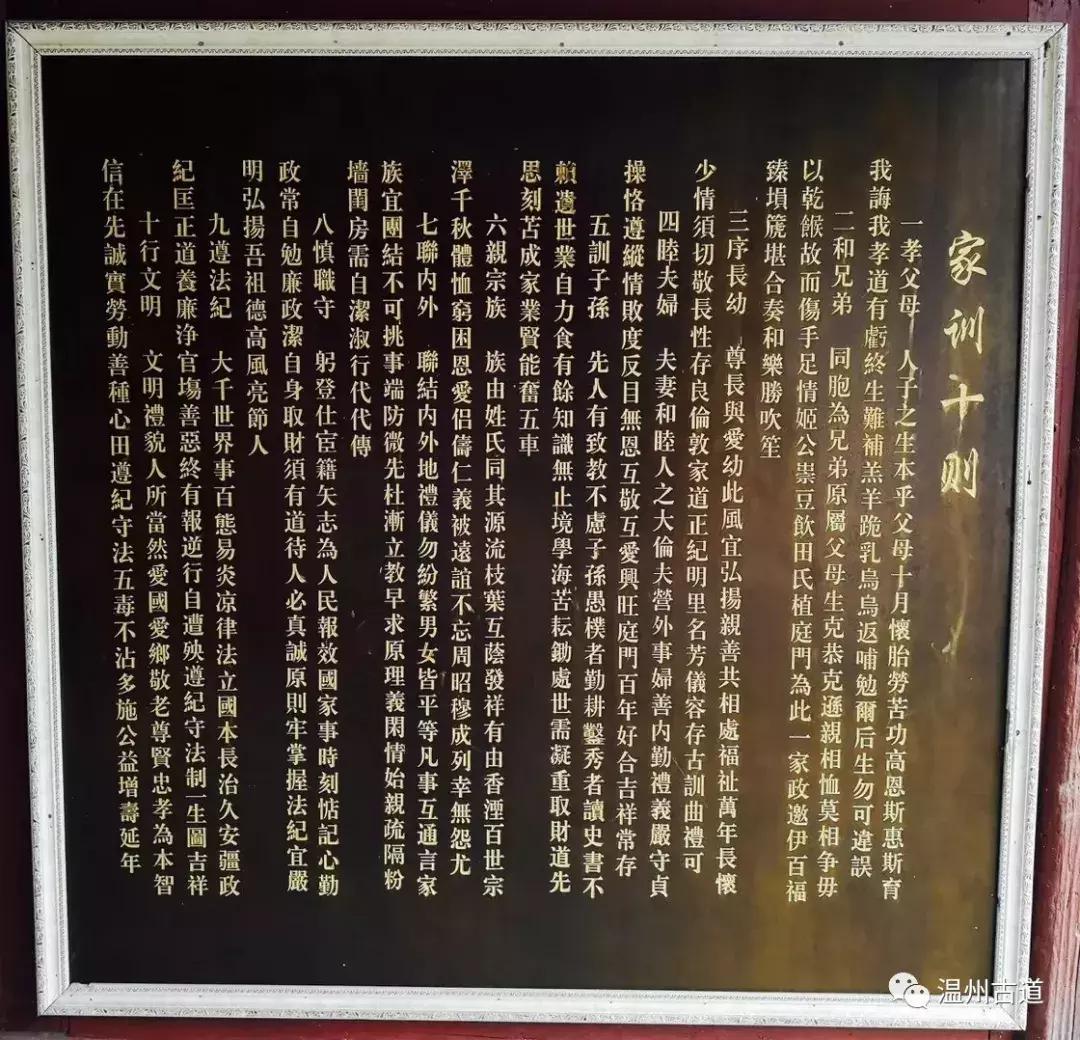 家训十则
一孝父母　人子之生本乎父母十月懷胎勞苦功高恩斯惠斯育
我誨我孝道有虧終生難補羔羊跪乳烏鳥返哺勉爾后生勿可違誤
二和兄弟　同胞為兄弟原屬父母生克恭克遜親相恤莫相争毋
以乾餱故而傷手足情姬公崇豆飲田氏植庭門為此一家政邀伊百福
臻塤篪堪合奏和樂勝吹笙
三序長幼　尊長與愛幼此風宜弘揚親善共相處福祉萬年長懷
少情須切敬長性存良倫敦家道正紀明里名芳儀容存古訓曲禮可
四睦夫婦　夫妻和睦人之大倫夫營外事婦善内勤禮義嚴守貞
操恪遵縱情敗度反目無恩互敬互愛興旺庭門百年好合吉祥常存
五訓子孫　先人有致教不慮子孫愚樸者勤耕鑿秀者讀史書不
賴遺世業自力食有餘知識無止境學海苦耘鋤處世需凝重取財道先
思刻苦成家業賢能奮五車
六親宗族　族由姓氏同其源流枝葉互蔭發祥有由香湮百世宗
澤千秋體恤窮困恩愛侣儔仁義被遠誼不忘周昭穆成列幸無怨尤
七聯内外　聯結内外地禮儀勿紛繁男女皆平等凡事互通言家
族宜團结不可挑事端防微先杜漸立教早求原理義閑情始親疏隔粉
墙閨房需自潔淑行代代傳
八慎職守　躬登仕宦籍矢志為人民報效國家事時刻惦記心勤
政常自勉廉政潔自身取財須有道待人必真誠原則牢掌握法紀宜嚴
明弘揚吾祖德高風亮節人
九遵法紀　大千世界事百態易炎凉律法立國本長治久安疆政
紀匡正道養廉浄官塲善惡終有報逆行自遭殃遵紀守法制一生圖吉祥
十行文明　文明禮貌人所當然愛國愛鄉敬老尊賢忠孝為本智
信在先誠實勞動善種心田遵紀守法五毒不沾多施公益增壽延年
温州古道